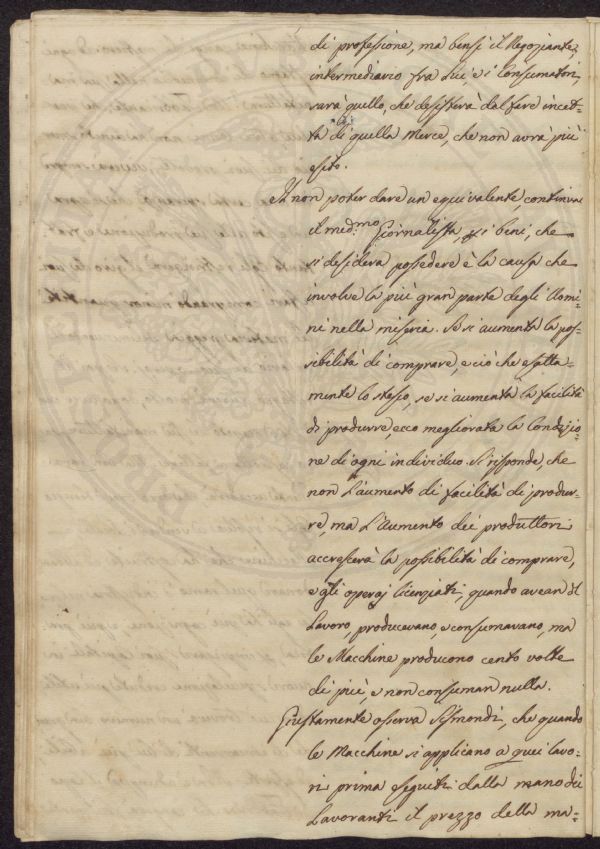 di professione, ma bensì il Negoziante
intermediario fra Lui, e i Consumatori,
sarà quello, che desisterà dal fare incet=
ta di quella Merce, che non avrà più
esito.
Il non poter dare un equivalente, continua
il med.mo Giornalista, ai beni, che
si desidera possedere è la causa che
involve la più gran parte degli Uomi=
ni nella miseria. Se si aumenta la pos=
sibilità di comprare, e ciò che è esatta=
mente lo stesso, se si aumenta la facilità
di produrre, ecco megliorata la Condizio=
ne di ogni individuo. Si risponde, che
non l'aumento di facilità di produr=
re, ma l'aumento dei produttori
accrescerà la possibilità di comprare,
e gli operaj licenziati, quando avean il
Lavoro, producevano, e consumavano, ma
le Macchine producono cento volte
di più, e non consuman nulla.
Giustamente osserva Sismondi, che quando
le Macchine si applicano a quei lavo=
ri prima eseguiti dalla mano dei
Lavoranti il prezzo della ma=